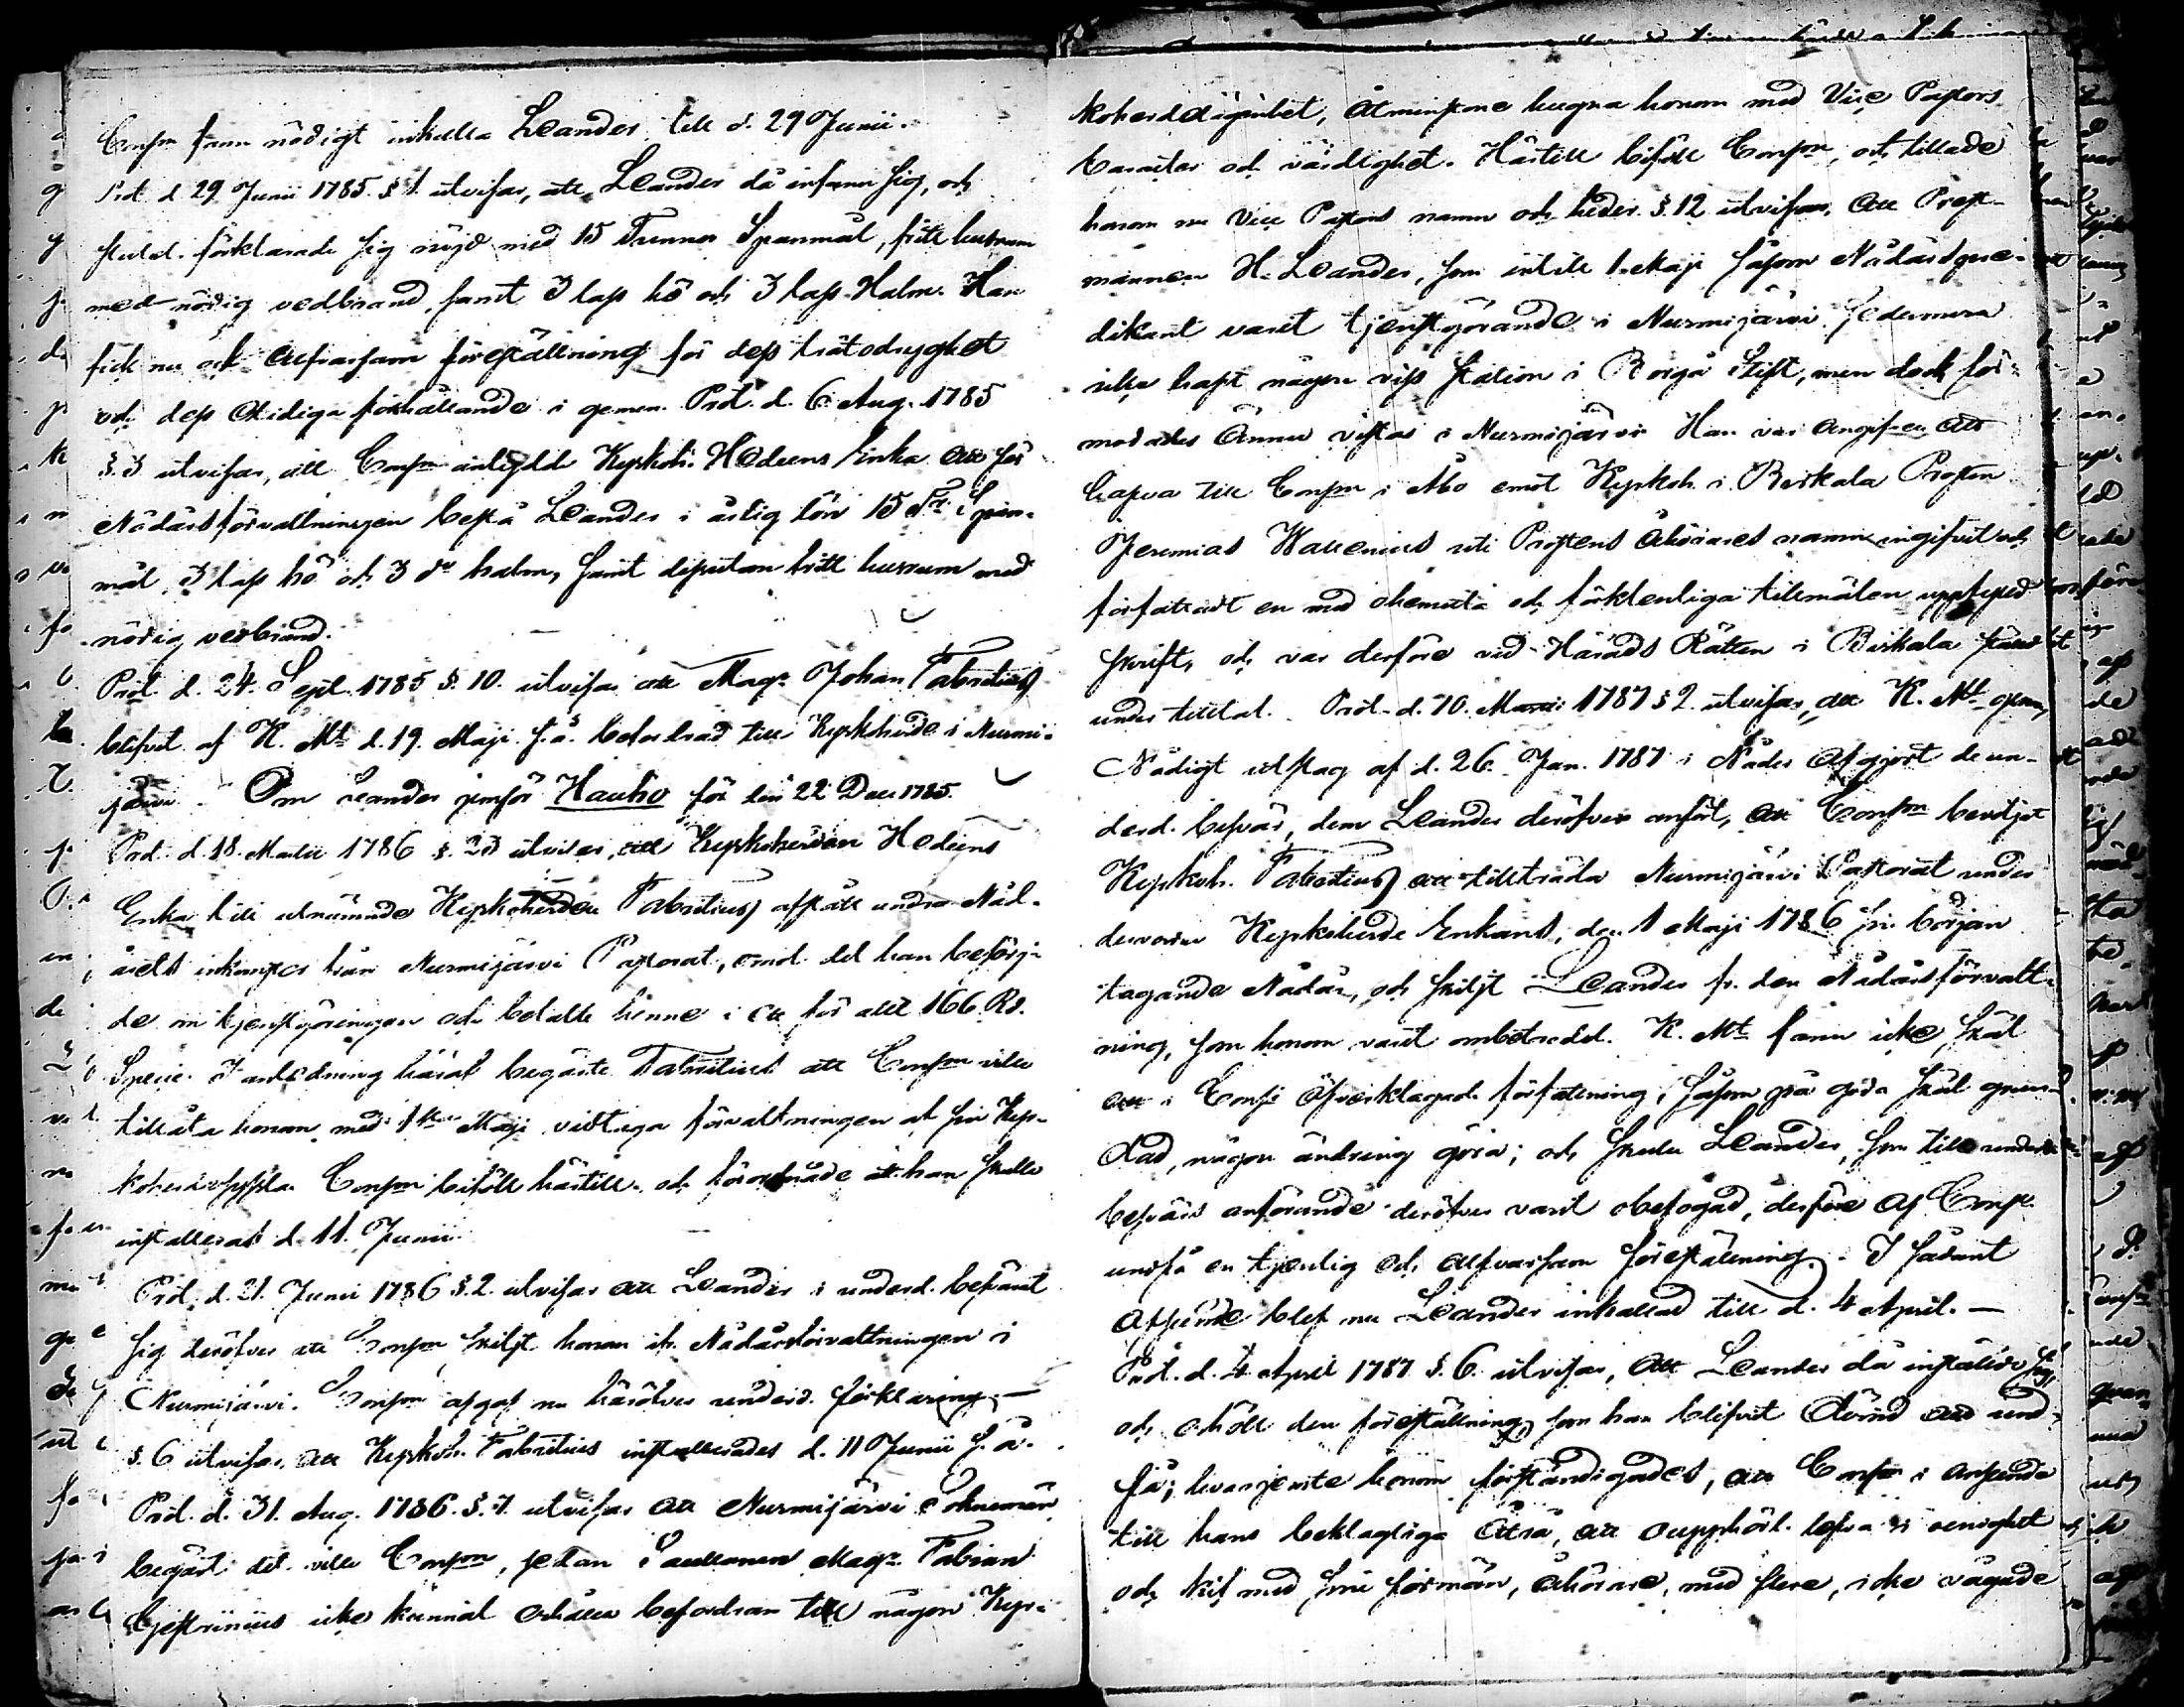 Consm fann nödigt inkalla Leander till d. 29 Junii.
Prot. d. 29 Junii 1785. § 1. utvisar, att Leander då infann sig, och
slutel. förklarade sig nöjd med 15 Tunnor Spanmål, fritt husrum
med nödig vedbrand, samt 3 lass hö och 3 lass Halm. Han
fick nu ock alfvarsam föreställning för dess trätodryghet
och dess otidiga förhållande i gemen. Prot. d. 6 Aug. 1785
§. 3 utvisar, att Consm ålagde Kyrkoh. Hedeens Enka att för
Nådårsförvaltningen bestå Leander i årlig lön 15 Tr Span-
mål, 3 lass hö och 3 do halm, samt dessutom fritt husrum med
nödig vedbrand.
Prot. d. 24. Sept. 1785 §. 10. utvisar att Magr Johan Fabritius
blifvit af K. Mt d. 19. Maji s. å. befordrad till Kyrkoherde i Nurmi-
järvi. Om Leander jemför Hauho för den 22 Dec. 1785.
Prot. d. 18. Martii 1786 §. 23 utvisar, att Kyrkoherden Hedeens
Enka till utnämnde Kyrkoherden Fabritius afstått andra Nåd-
årets inkomster från Nurmijärvi Pastorat, emot det han besörj-
de om tjenstgöringen och betalte henne i ett för allt 166 Rd.
Specie. I anledning häraf begärte Fabritius att Consm ville
tillåta honom med 1ste Maji vidtaga förvaltningen af sin Kyr-
koherdesyssla. Consm biföll härtill, och förordnade att han skulle
installeras d. 11. Junii.
Prot. d. 21. Junii 1786 §. 2. utvisar att Leander i underd. besvärat
sig deröfver att Consm skiljt honom ifr. Nådårsförvaltningen i
Nurmijärvi. Consm afgaf nu häröfver underd. förklaring. —
§. 6 utvisar, att Kyrkoh. Fabritius installerades d. 11 Junii s. å.
Prot. d. 31. Aug. 1786. §. 7. utvisar att Nurmijärvi Soknemän
begärt det ville Consm, sedan Magr Fabian
icke kunnat erhålla befordran till någon Kyr-
koherdelägenhet, åtminstone hugna honom med Vice Pastors
caracter och värdighet. Härtill biföll Consm, och tillade
honom nu Vice Pastors namn och heder. §. 12 utvisar, att Prest-
mannen H. Leander, som intill 1. Maji såsom Nådårspre-
dikant varit tjenstgörande i Nurmijärvi sedermera
icke haft någon viss station i Borgå Stift, men dock för-
modades ännu vistas i Nurmijärvi. Han var angifven att
hafva till Consm i Åbo emot Kyrkoh. i Birkala Prosten
Jeremias Wallenius uti Prostens åhörares namn ingifvit och
författadt en med obemälta och förklenliga tillmälen uppfyld
skrift, och var derföre vid Härads Rätten i Birkala ställd
under tilltal. Prot. d. 10. Martii 1787 § 2. utvisar, att K. Mt genom
Nådigt utslag af d. 26. Jan. 1787 i Nåder afgjort de un-
derd. besvär, dem Leander deröfver anfört, att Consm beviljat
Kyrkoh. Fabritius att tillträda Nurmijärvi Pastorat under
dervarande Kyrkoherde Enkans, den 1 Maji 1786 sin början
tagande Nådår, och skiljt Leander fr. den Nådårsförvalt-
ning, som honom varit ombetrodd. K. Mt fann icke skäl
att i Consii öfverklagade författning, såsom på goda skäl grun-
dad, någon ändring göra; och skulle Leander, som till underd.
besvärs anförande deröfver varit obefogad, derföre af Consm
undfå en tjenlig och alfvarsam föreställning. I sådant
afseende blef nu Leander inkallad till d. 4 April. —
Prot. d. 4 April 1787 §. 6. utvisar, att Leander då inställde sig,
och erhöll den föreställning, som han blifvit dömd att und-
få; hvarjemte honom förständigades, att Consm i anseende
till hans beklagliga åtrå, att oupphörl. lefva i oenighet
och kif med sine förmän, åhörare, med flere, icke vågade